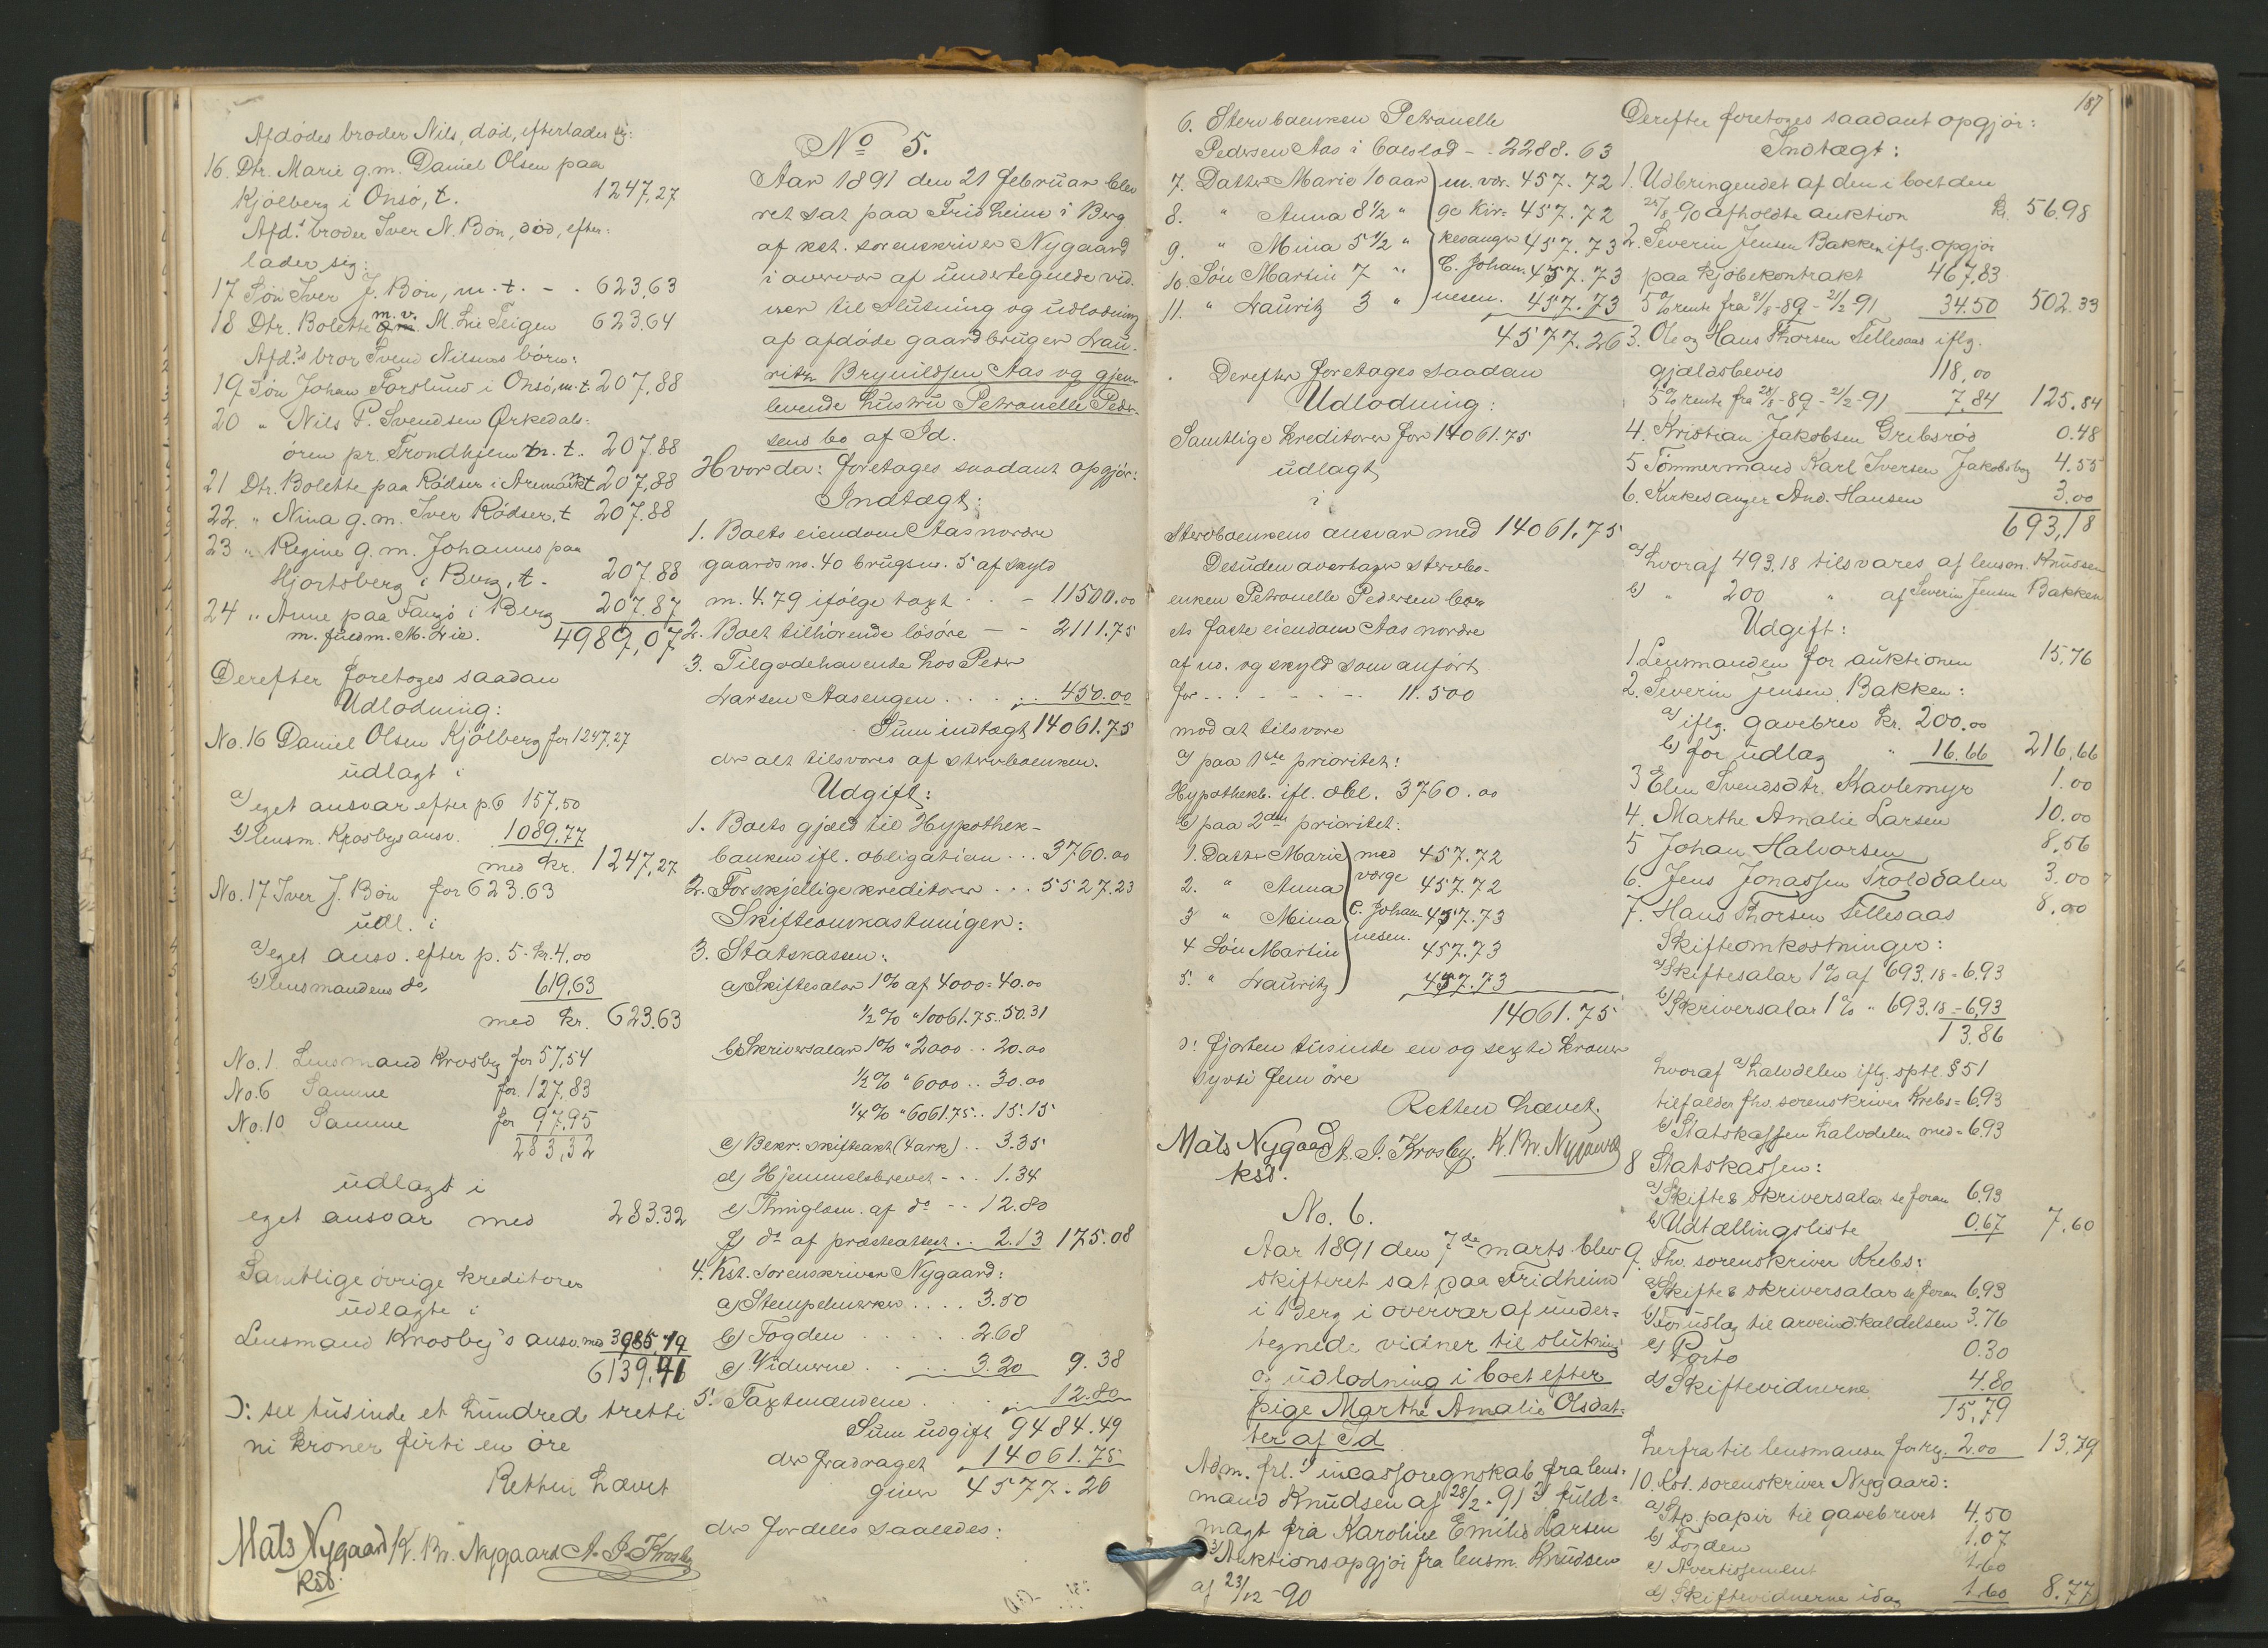 Afdödes broder Nils, död, efterlader sig:
16. Dtr. Marie g.m. Daniel Olsen paa
Kjölberg i Onsö, t. 1247,27
Afd.s broder Iver N. Bön, död, efter=
lader sig:
17 Sön Iver J. Bön, m. t. - . 623,63
18 Dtr. Bolette m. v. M. Lie Teigen 623.64
Afd.'s bror Svend Nilsens börn:
19 Sön Johan Forslund i Onsö, m. t 207,88
20 " Nils P. Svendsen Örkedals=
ören pr. Trondhjem m. t. 207.88
21 Dtr. Bolette paa Rödser i Aremark t 207,88
22. " Nina g. m. Iver Rödser, t 207.88
23 " Regine g. m. Johannes paa
Hjortsberg i Berg, t. 207.88
24 " Anne paa Fangö i Berg 207.87
m. fuldm. M. Lie. 4989,07
Derefter foretages saadan
Udlodning:
No. 16 Daniel Olsen Kjölberg for 1247.27
udlagt i
a) eget ansvar efter p. 6 157,50
b) lensm. Krosbys ansv. 1089.77
med kr. 1247,27
No. 17 Iver J. Bön for 623.63
udl. i
a) eget ansv. efter p. 5 - kr. 4,00
b) lensmandens do, 619,63
med kr. 623.63
No. 1. Lensmand Krosby for 57,54
No. 6 Samme for 127,83
No. 10 Samme for 97.95
283,32
udlagt i
eget ansvar med 283.32
Samtlige övrige kreditorer
udlagte i
Lensmand Krosby's ansv. med 3985,19
6139,41
ɔ: sex tusinde et hundrede tretti
ni kroner firti en öre
Retten hævet
Mats Nygaard K. Br. Nygaard A. J. Krosby
kst.
No 5.
Aar 1891 den 21 februar blev
ret sat paa Fridheim i Berg
af kst. sorenskriver Nygaard
i overvær af undertegnede vid-
ner til slutning og udlodning
af afdöde gaardbruger Lau-
ritz Brynildsen Aas og gjen-
levende hustru Petronelle Peder-
sens bo af Id.
Hvorda: foretages saadant opgjör:
Indtægt:
1. Boets eiendom Aas nordre
gaards no. 40 brugsn. 5 af skyld
m. 4.79 ifölge taxt - - - 11500.00
2. Boet tilhörende lösöre - - 2111.75
3. Tilgodehavende hos Peder
Larsen Aasengen . . . . . . 450.00
Sum indtægt 14061.75
der alt tilsvares af stervboenken.
Udgift:
1. Boets gjæld til Hypothek-
banken ifl. obligation . . . 3760.00
2. Forskjellige kreditorer . . . 5527.23
Skifteomkostninger:
3. Statskassen:
a) Skiftesalær 1% af 4000 = 40.00
½ % " 10061.75 . . 50.31
b) Skriversalær 1% " 2000 . . 20.00
½ % " 6000 . . 30.00
¼ % " 6061.75 . . 15.15
c) Bekr. skifteakt (4 ark) . . 3.35
d) Hjemmelsbrevet - . . 1.34
e) Thinglæsn. af do - - 12.80
f) do af præsteattest . . 2.13 175.08
4. Kst. sorenskriver Nygaard:
a) Stempelmerker . . . . 3.50
b) Fogden . . . . . 2.68
c) Vidnerne . . . . . 3.20 9.38
5. Taxtmændene . . . . 12.80
Sum udgift 9484.49
der fradraget 14061.75
giver 4577.26
der fordeles saaledes:
6. Stervboenken Petronelle
Pedersen Aas i boeslod - . 2288.63
7. Datter Marie 10 aar m. vær- 457.72
8. " Anna 8½ " ge Kir= 457.72
9. " Mina 5½ " kesanger 457.73
10 Sön Martin 7 " C. Johan- 457.73
11. " Lauritz 3 " nesen. 457.73
4577.26
Derefter foretages saadan
Udlodning:
Samtlige kreditorer for 14061.75
udlagt
i
Stervboenkens ansvar med 14061.75
Desuden overtager stervbo-
enken Petronelle Pedersen bo-
ets faste eiendom Aas nordre
af no. og skyld som anfört
for - . . - - - - . 11.500
mod at tilsvare
a) paa 1ste prioritet:
Hypothekb. ifl. obl. 3760.00
b) paa 2den prioritet:
1. Datter Marie med 457.72
2. " Anna værge 457.72
3 " Mina C. Johan- 457.73
4 Sön Martin nesen. 457.73
5. " Lauritz 457.73
14061.75
ɔ: fjorten tusinde en og sexti kroner
sytti fem öre
Retten hævet.
Mats Nygaard A. J. Krosby. K. Br. Nygaard
kst.
No. 6.
Aar 1891 den 7de marts blev
skifteret sat paa Fridheim
i Berg i overvær af under=
tegnede vidner til slutning
o. udlodning i boet efter
pige Marthe Amalie Olsdat=
ter af Id
Adm. frl. 1) incassoregnskab fra lens=
mand Knudsen af 28/2 - 91 2) fuld=
magt fra Karoline Emilie Larsen
3) Auktionsopgjör fra lensm. Knudsen
af 23/12 - 90
187
Derefter foretages saadant opgjör:
Indtægt:
1. Udbringendet af den i boet den
28/8 - 90 afholdte auktion kr. 56.98
2. Severin Jensen Bakken iflg. opgjör
paa kjöbekontrakt 467.83
5% rente fra 21/8 - 89 - 21/2 - 91 34.50 502.33
3. Ole og Hans Thorsen Tellesaas iflg.
gjældsbevis 118,00
5% rente fra 24/8 - 89 - 21/2 - 91 7.84 125.84
4. Kristian Jakobsen Gribsröd 0.48
5 Tömmermand Karl Iversen Jakobsbog 4.55
6. Kirkesanger And. Hansen 3.00
693,18
a) hvoraf 493.18 tilsvares af lensm. Knudsen
b) " 200 " af Severin Jensen Bakken
Udgift:
1. Lensmanden for auktionen 15,76
2. Severin Jensen Bakken:
a) iflg. gavebrev kr. 200.00
b) for udlæg " 16.66 216,66
3 Elen Svendsdtr. Kavlemyr 1.00
4. Marthe Amalie Larsen 10.00
5 Johan Halvorsen 8,56
6. Jens Jonassen Trolddalen 3.00
7. Hans Thorsen Tellesaas 8.00
Skifteomkostninger:
a) Skiftesalær 1% af 693.18 = 6.93
b) Skriversalær 1% " 693.18 = 6,93
13.86
hvoraf a) halvdelen iflg. sptl. § 51
tilfalder fhv. sorenskriver Krebs = 6.93
b) Statskassen halvdelen med = 6.93
8 Statskassen:
a) Skifte & skriversalær se foran 6.93
b) Udtællingsliste 0.67 7.60
9. Fhv. sorenskriver Krebs:
a) Skifte & skriversalær se foran 6.93
b) Forudlæg til arveindkaldelsen 3.76
c) Porto 0.30
d) Skiftevidnerne 4.80
15,79
herfra til lensmanden for reg. 2.00 13.79
10. kst. sorenskriver Nygaard:
a) Stp. papir til gavebrevet 4.50
b) Fogden 1.07
c) Avertissement 1.60
d) Skiftevidnerne idag 1.60 8.77